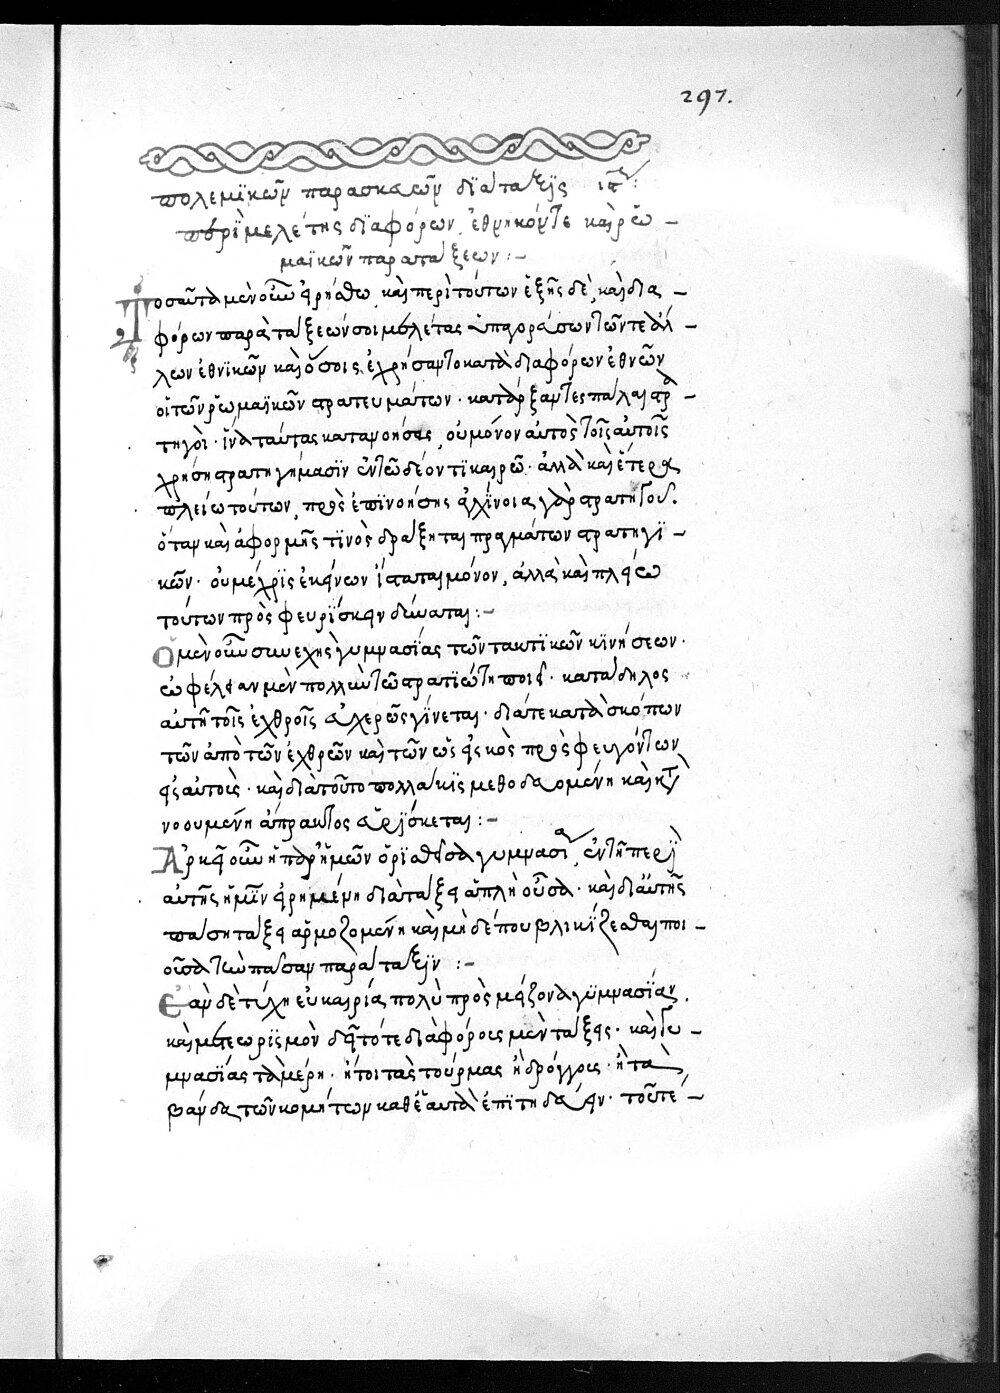 297.
πολεμϊκῶν παρασκευῶν δϊάταξϊς ιη:
περὶ μελέτης δϊαφόρων ἐθνηκόν τε καὶ ῥω –
μαϊκῶν παρατάξεων: –
Τοσαῦτα μὲν οὖν εἰρήσθω, καὶ περὶ τούτων ἑξῆς δὲ, καὶ δια –
φόρων παρατάξεών σοι μελέτας ὑπαγορεύσω τῶν τε ἄλ –
λων ἐθνϊκῶν καὶ ὅσοις ἐχρήσαντο κατὰ διαφόρων ἐθνῶν
οἱ τῶν ῥωμαϊκῶν στρατευμάτων· κατάρξαντες πάλαι στρα –
τηγοὶ· ἵνα ταύτας κατανοήσας, οὐ μόνον αὐτὸς τοῖς αὐτοῖς
χρήση στρατηγήμασϊν ἐν τῶ δέοντι καιρῶ· ἀλλὰ καὶ ἕτερα
πλείω τούτων, προσεπϊνοήσης ἀγχίνοια γὰρ στρατηγοῦ.
ὅταν καὶ ἀφορμῆς τϊνὸς δράξηται πραγμάτων στρατηγϊ –
κῶν· οὐ μέχρϊς ἐκείνων ἵσταται μόνον, ἀλλὰ καὶ πλείω
τούτων προσφευρίσκειν δύναται: –
Ὁ μὲν οὖν συνεχὴς γυμνασίας τῶν τακτϊκῶν κϊνήσεων·
ὠφέλειαν μὲν πολλὴν τῶ στρατϊώτη ποιεῖ· κατάδηλος
αὐτῆ τοῖς ἐχθροῖς εὐχερῶς γίνεται· διά τε κατασκόπων
τῶν ἀπὸ τῶν ἐχθρῶν καὶ τῶν ὡς εἰκὸς προσφευγόντων
εἰς αὐτοὺς· καὶ διὰ τοῦτο πολλάκϊς μεθοδευομένη καὶ κα
νοουμένη ἄπρακτος εὑρϊσκεται: –
Ἀρκεῖ οὖν ἡ παρ' ἡμῶν ὁρϊσθεῖσα γυμνασία, ἐν τῆ περὶ
αὐτῆς ἡμῖν εἰρημένη διάταξει ἁπλὴ οὖσα· καὶ δι' αὐτῆς
πάση τάξει ἁρμοζομένη καὶ μὴδέπου βλικϊζεσθαι ποι –
οῦσα τὴν πᾶσαν παράταξϊν: –
Ἐὰν δὲ τύχη εὐκαιρία πολὺ πρὸς μείζονα γϋμνασίαν.
καὶ μετεωρϊσμὸν δεῖ τότε διαφόροις μὲν τάξεις· καὶ γυ –
μνασϊας τὰ μέρη· ἤτοι τὰς τούρμας ἢ δρόγγοις· ἢ τὰ
βάνδα τῶν κομήτων καθ' ἑαυτὰ ἐπϊτηδεύειν· τοῦτέ –